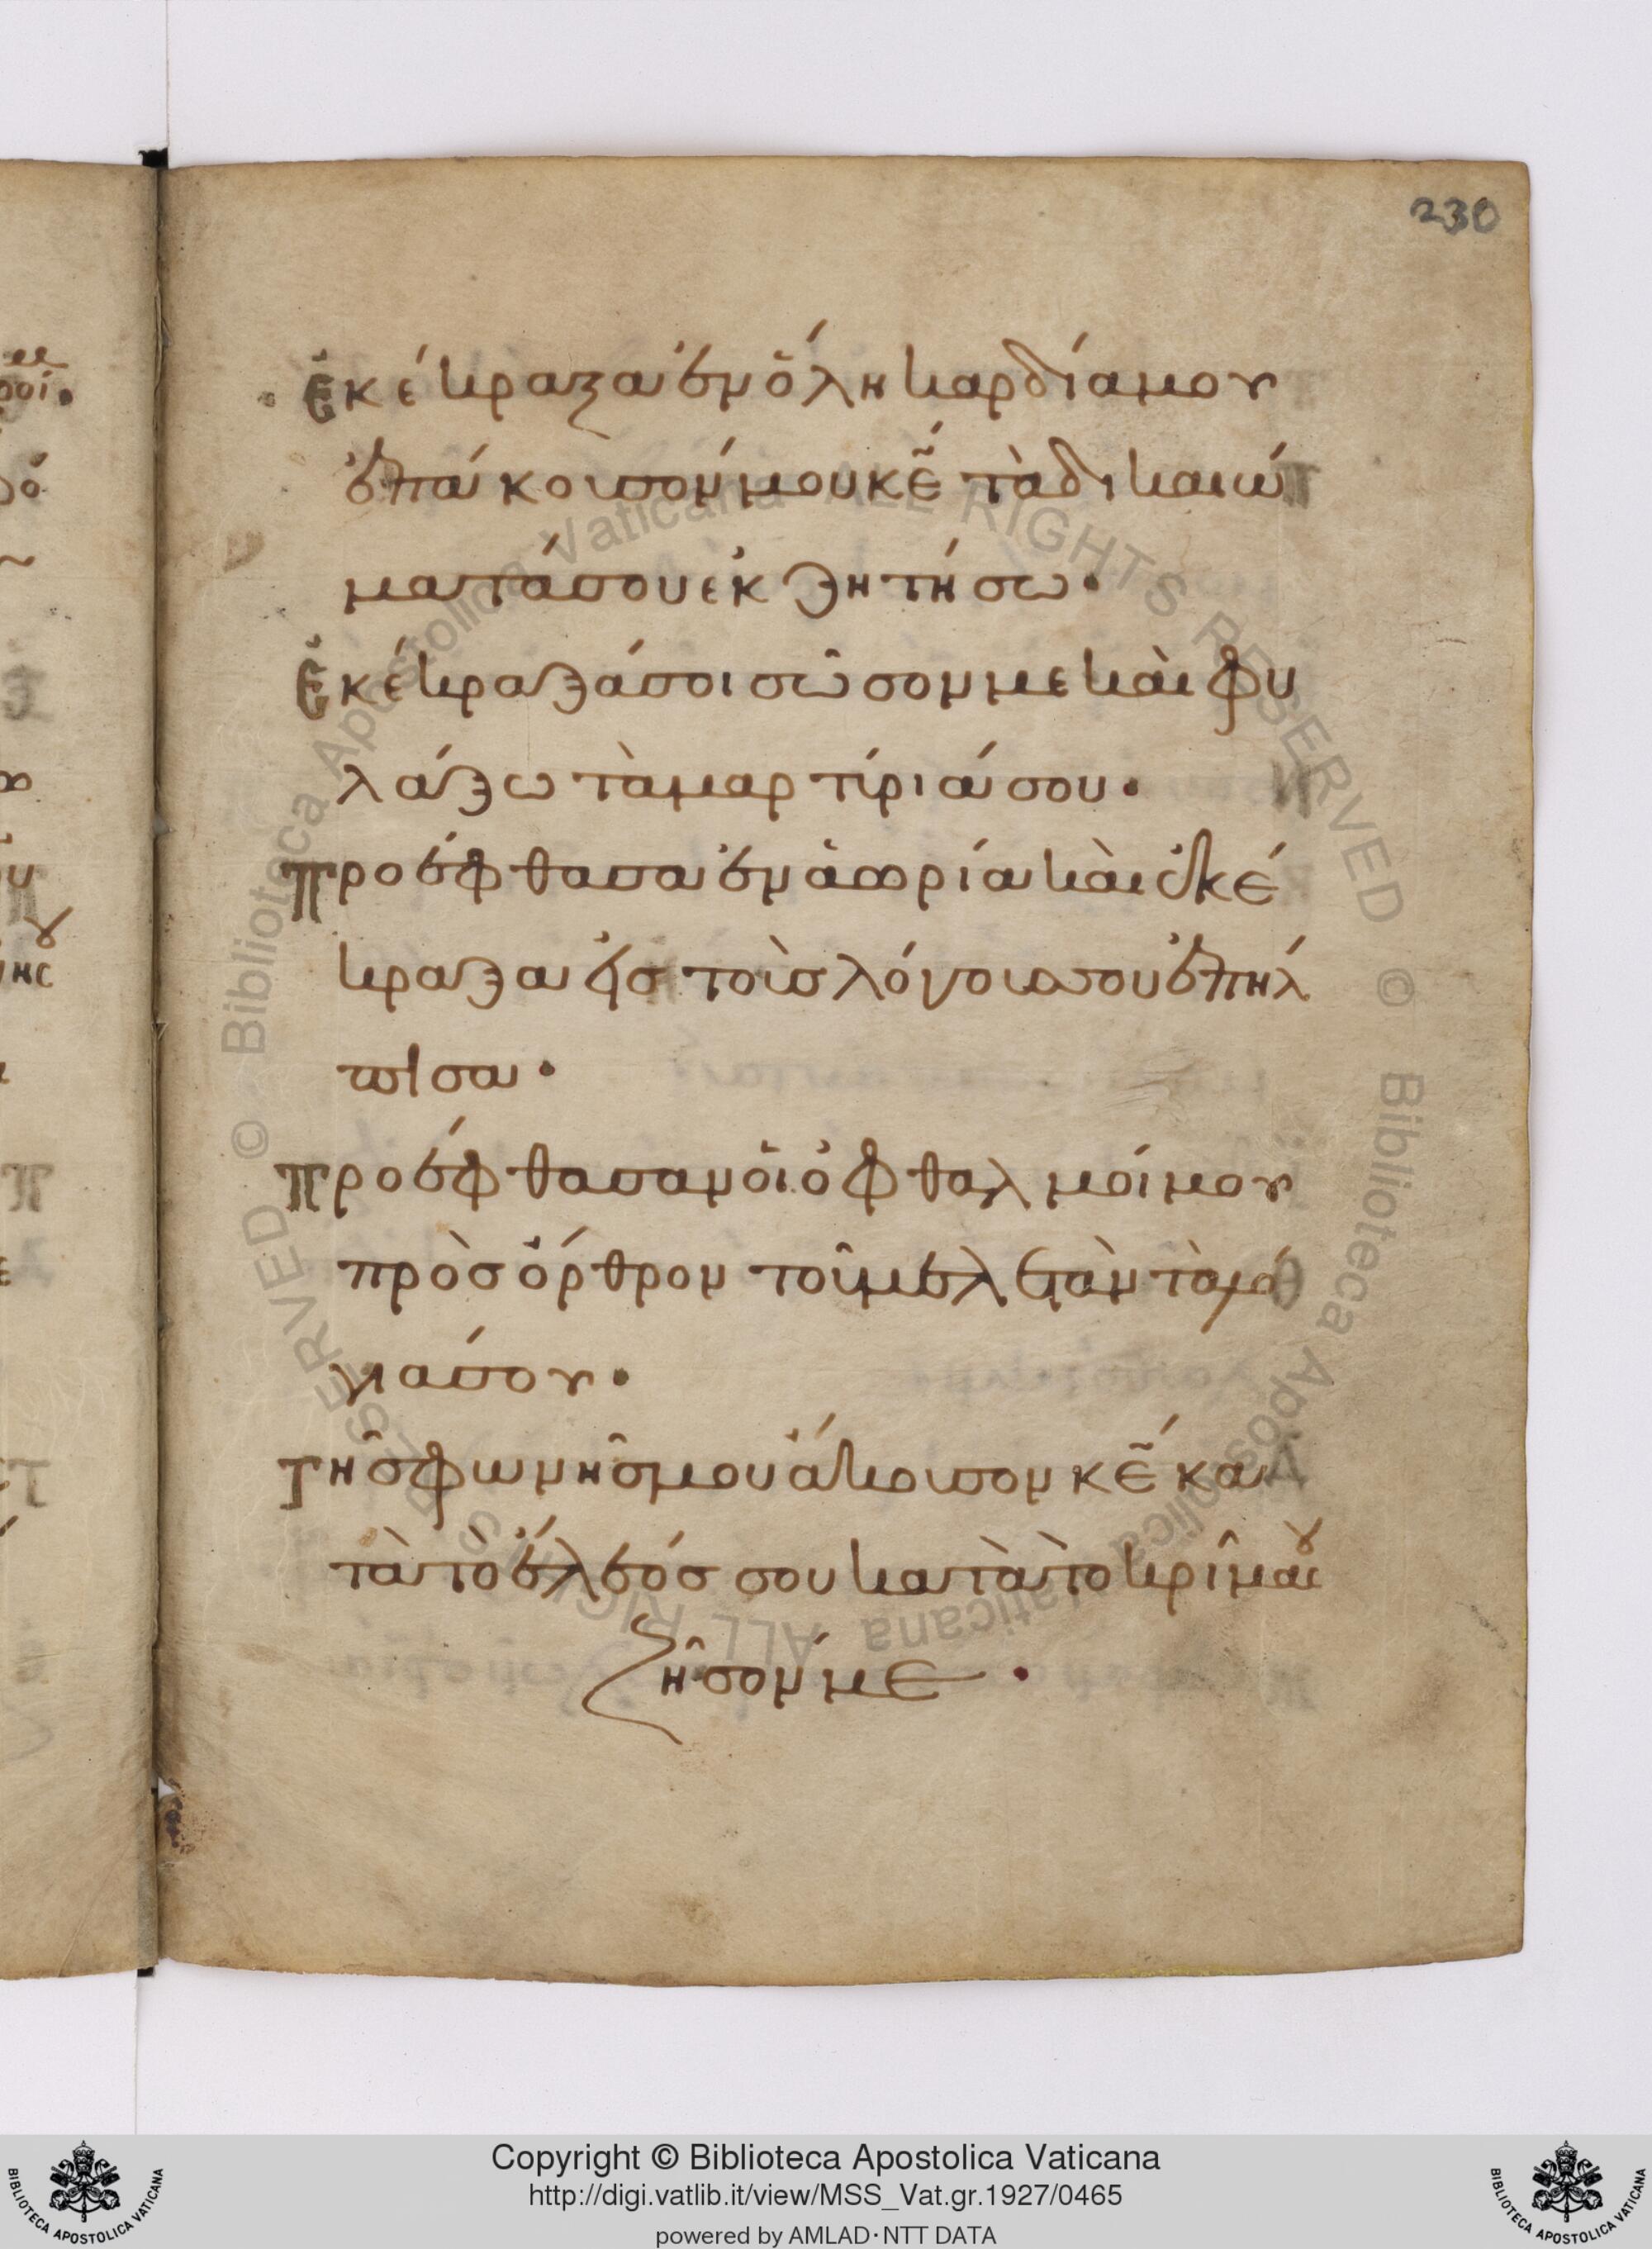 230
ἐκέκραξα ἐν ὅλη καρδία μου
ἐπάκουσόν μου κ̅ε̅ τὰ δικαιώ
ματά σου ἐκζητήσω·
ἐκέκραξά σοι σῶσον με καὶ φυ
λάξω τὰ μαρτίριά σου·
προέφθασα ἐν ἀωρία καὶ ἐκέ
κραξα εἰς τοὺς λόγουσ σου ἐπήλ
πισα·
προέφθασαν οἱ ὀφθαλμοί μου
πρὸσ ὄρθρον τοῦ μελετὰν τὰ λό
γιά σου·
τῆσ φωνῆσ μου ἄκουσον κ̅ε̅ κα
τὰ τὸ ἔλεόσ σου κατὰ τὸ κρῖμά σου
ζῆσόν με·
Copyright © Biblioteca Apostolica Vaticana
http://digi.vatlib.it/view/MSS_Vat.gr.1927/0465
powered by AMLAD·NTT DATA